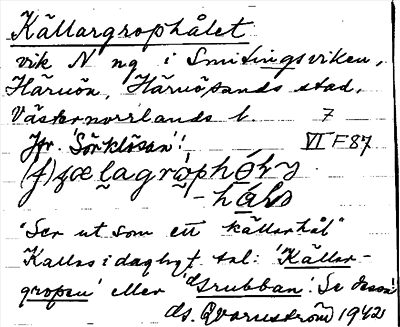 Källargrophålet
vik N ng i Smitingsviken,
Härnön, Härnösands stad,
Västernorrlands l. 7
Jfr. 'Sörklösan'! VI F87
"Ser ut som ett källarhål"
Kallas i dagligt tal: 'Källar-
gropen' eller 'Grubban'. Se dessa!
ds. Qvarnström 1942